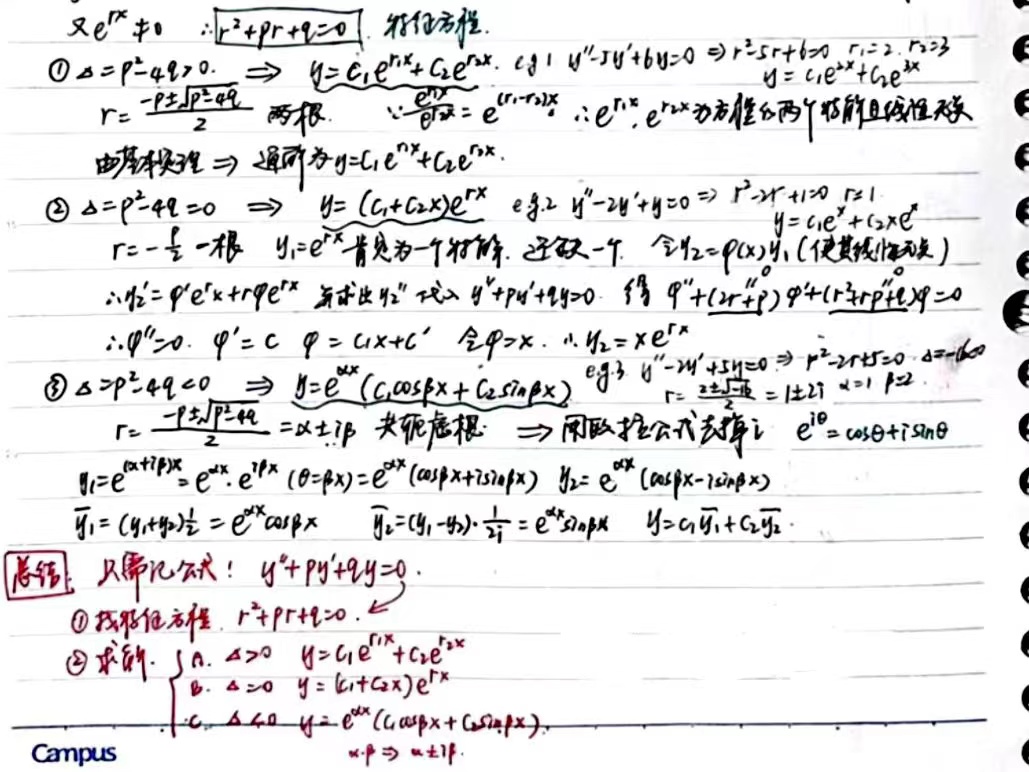 又e^{rx}≠0 ∴ r²+pr+q=0. 特征方程.
① Δ=p²-4q>0. ⇒ y=C₁e^{r₁x}+C₂e^{r₂x}. e.g.1 y''-5y'+6y=0 ⇒ r²-5r+6=0 r₁=2. r₂=3
y=C₁e^{2x}+C₂e^{3x}
r=\frac{-p±\sqrt{p²-4q}}{2} 两根. ∵\frac{e^{r₁x}}{e^{r₂x}}=e^{(r₁-r₂)x}. ∴e^{r₁x}, e^{r₂x}为方程的两个特解且线性无关
由基本定理 ⇒ 通解为y=C₁e^{r₁x}+C₂e^{r₂x}.
② Δ=p²-4q=0 ⇒ y=(C₁+C₂x)e^{rx} e.g.2 y''-2y'+y=0 ⇒ r²-2r+1=0 r=1.
y=C₁e^x+C₂xe^x
r=-\frac{p}{2} 一根 y₁=e^{rx} 肯定为一个特解. 还缺一个. 令y₂=φ(x)y₁(使其线性无关)
∴y₂'=φ'e^{rx}+rφe^{rx} 再求出y₂''代入 y''+py'+qy=0. 得 φ''+(2r+p)φ'+(r²+rp+q)φ=0
0 0
∴φ''=0. φ'=C φ=C₁x+C' 令φ=x. ∴y₂=xe^{rx}
e.g.3 y''-2y'+5y=0 ⇒ r²-2r+5=0. Δ=-16<0
③ Δ=p²-4q<0 ⇒ y=e^{αx}(C₁cosβx+C₂sinβx) r=\frac{2±\sqrt{-16}}{2}=1±2i α=1 β=2.
r=\frac{-p±\sqrt{p²-4q}}{2}=α±iβ 共轭虚根. ⇒ 用欧拉公式去掉i e^{iθ}=cosθ+isinθ
y₁=e^{(α+iβ)x}=e^{αx}·e^{iβx}(θ=βx)=e^{αx}(cosβx+isinβx) y₂=e^{αx}(cosβx-isinβx)
\bar{y₁}=(y₁+y₂)\frac{1}{2}=e^{αx}cosβx \bar{y₂}=(y₁-y₂)·\frac{1}{2i}=e^{αx}sinβx y=C₁\bar{y₁}+C₂\bar{y₂}.
总结: 只需记公式! y''+py'+qy=0.
① 找特征方程. r²+pr+q=0.
② 求解. { A. Δ>0 y=C₁e^{r₁x}+C₂e^{r₂x}
B. Δ=0 y=(C₁+C₂x)e^{rx}
C. Δ<0 y=e^{αx}(C₁cosβx+C₂sinβx).
α.β ⇒ α±iβ.
Campus